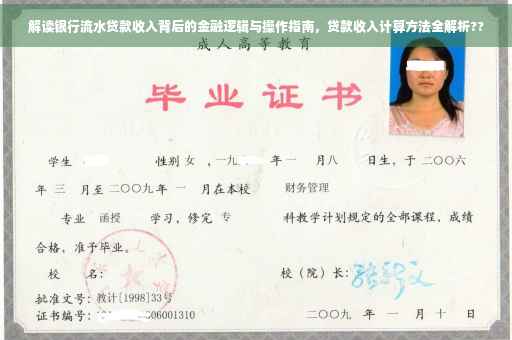 解读银行流水贷款收入背后的金融逻辑与操作指南，贷款收入计算方法全解析??
成人高等教育
毕业证书
学生 性别 女 ，一九 年 一 月八 日生，于 二〇〇六
年 三 月至 二〇〇九 年 一 月在本校 财务管理
专业 函授 学习，修完 专 科教学计划规定的全部课程，成绩
合格，准予毕业。
校 名： 校（院）长：
批准文号：教计[1998]33号
证书编号： 06001310 二〇〇九 年 一 月 十 日